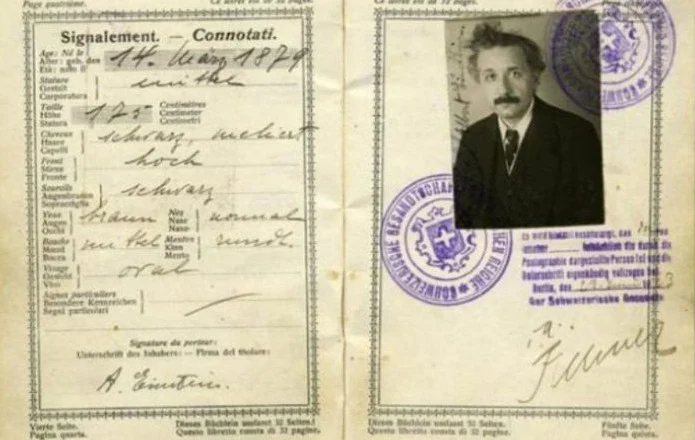 Page quatrième.
Signalement. — Connotati.
Age: Né le
Alter: geb. den
Età: nato il
14. März 1879
Stature
Gestalt
Corporatura
mittel
Taille
Höhe
Statura
175
Centimètres
Centimeter
Centimetri
Cheveux
Haare
Capelli
schwarz, meliert
Front
Stirne
Fronte
hoch
Sourcils
Augenbrauen
Sopracciglia
schwarz
Yeux
Augen
Occhi
braun
Nez
Nase
Naso
normal
Bouche
Mund
Bocca
mittel
Menton
Kinn
Mento
rund.
Visage
Gesicht
Viso
oval
Signes particuliers
Besondere Kennzeichen
Segni particolari
Signature du porteur:
Unterschrift des Inhabers: — Firma del titolare:
A. Einstein.
Vierte Seite.
Pagina quarta.
Dieses Büchlein umfasst 32 Seiten.
Questo libretto consta di 32 pagine.
SCHWEIZERISCHE GESANDTSCHAFT
DEUTSCHEN REICHE
Es wird hiermit bescheinigt, dass
die durch die
Photographie dargestellte Person ist und die
Unterschrift eigenhändig vollzogen hat
Berlin, den
Der Schweizerische Gesandte
Dieses Büchlein umfasst 32 Seiten.
Questo libretto consta di 32 pagine.
Fünfte Seite.
Pagina quinta.